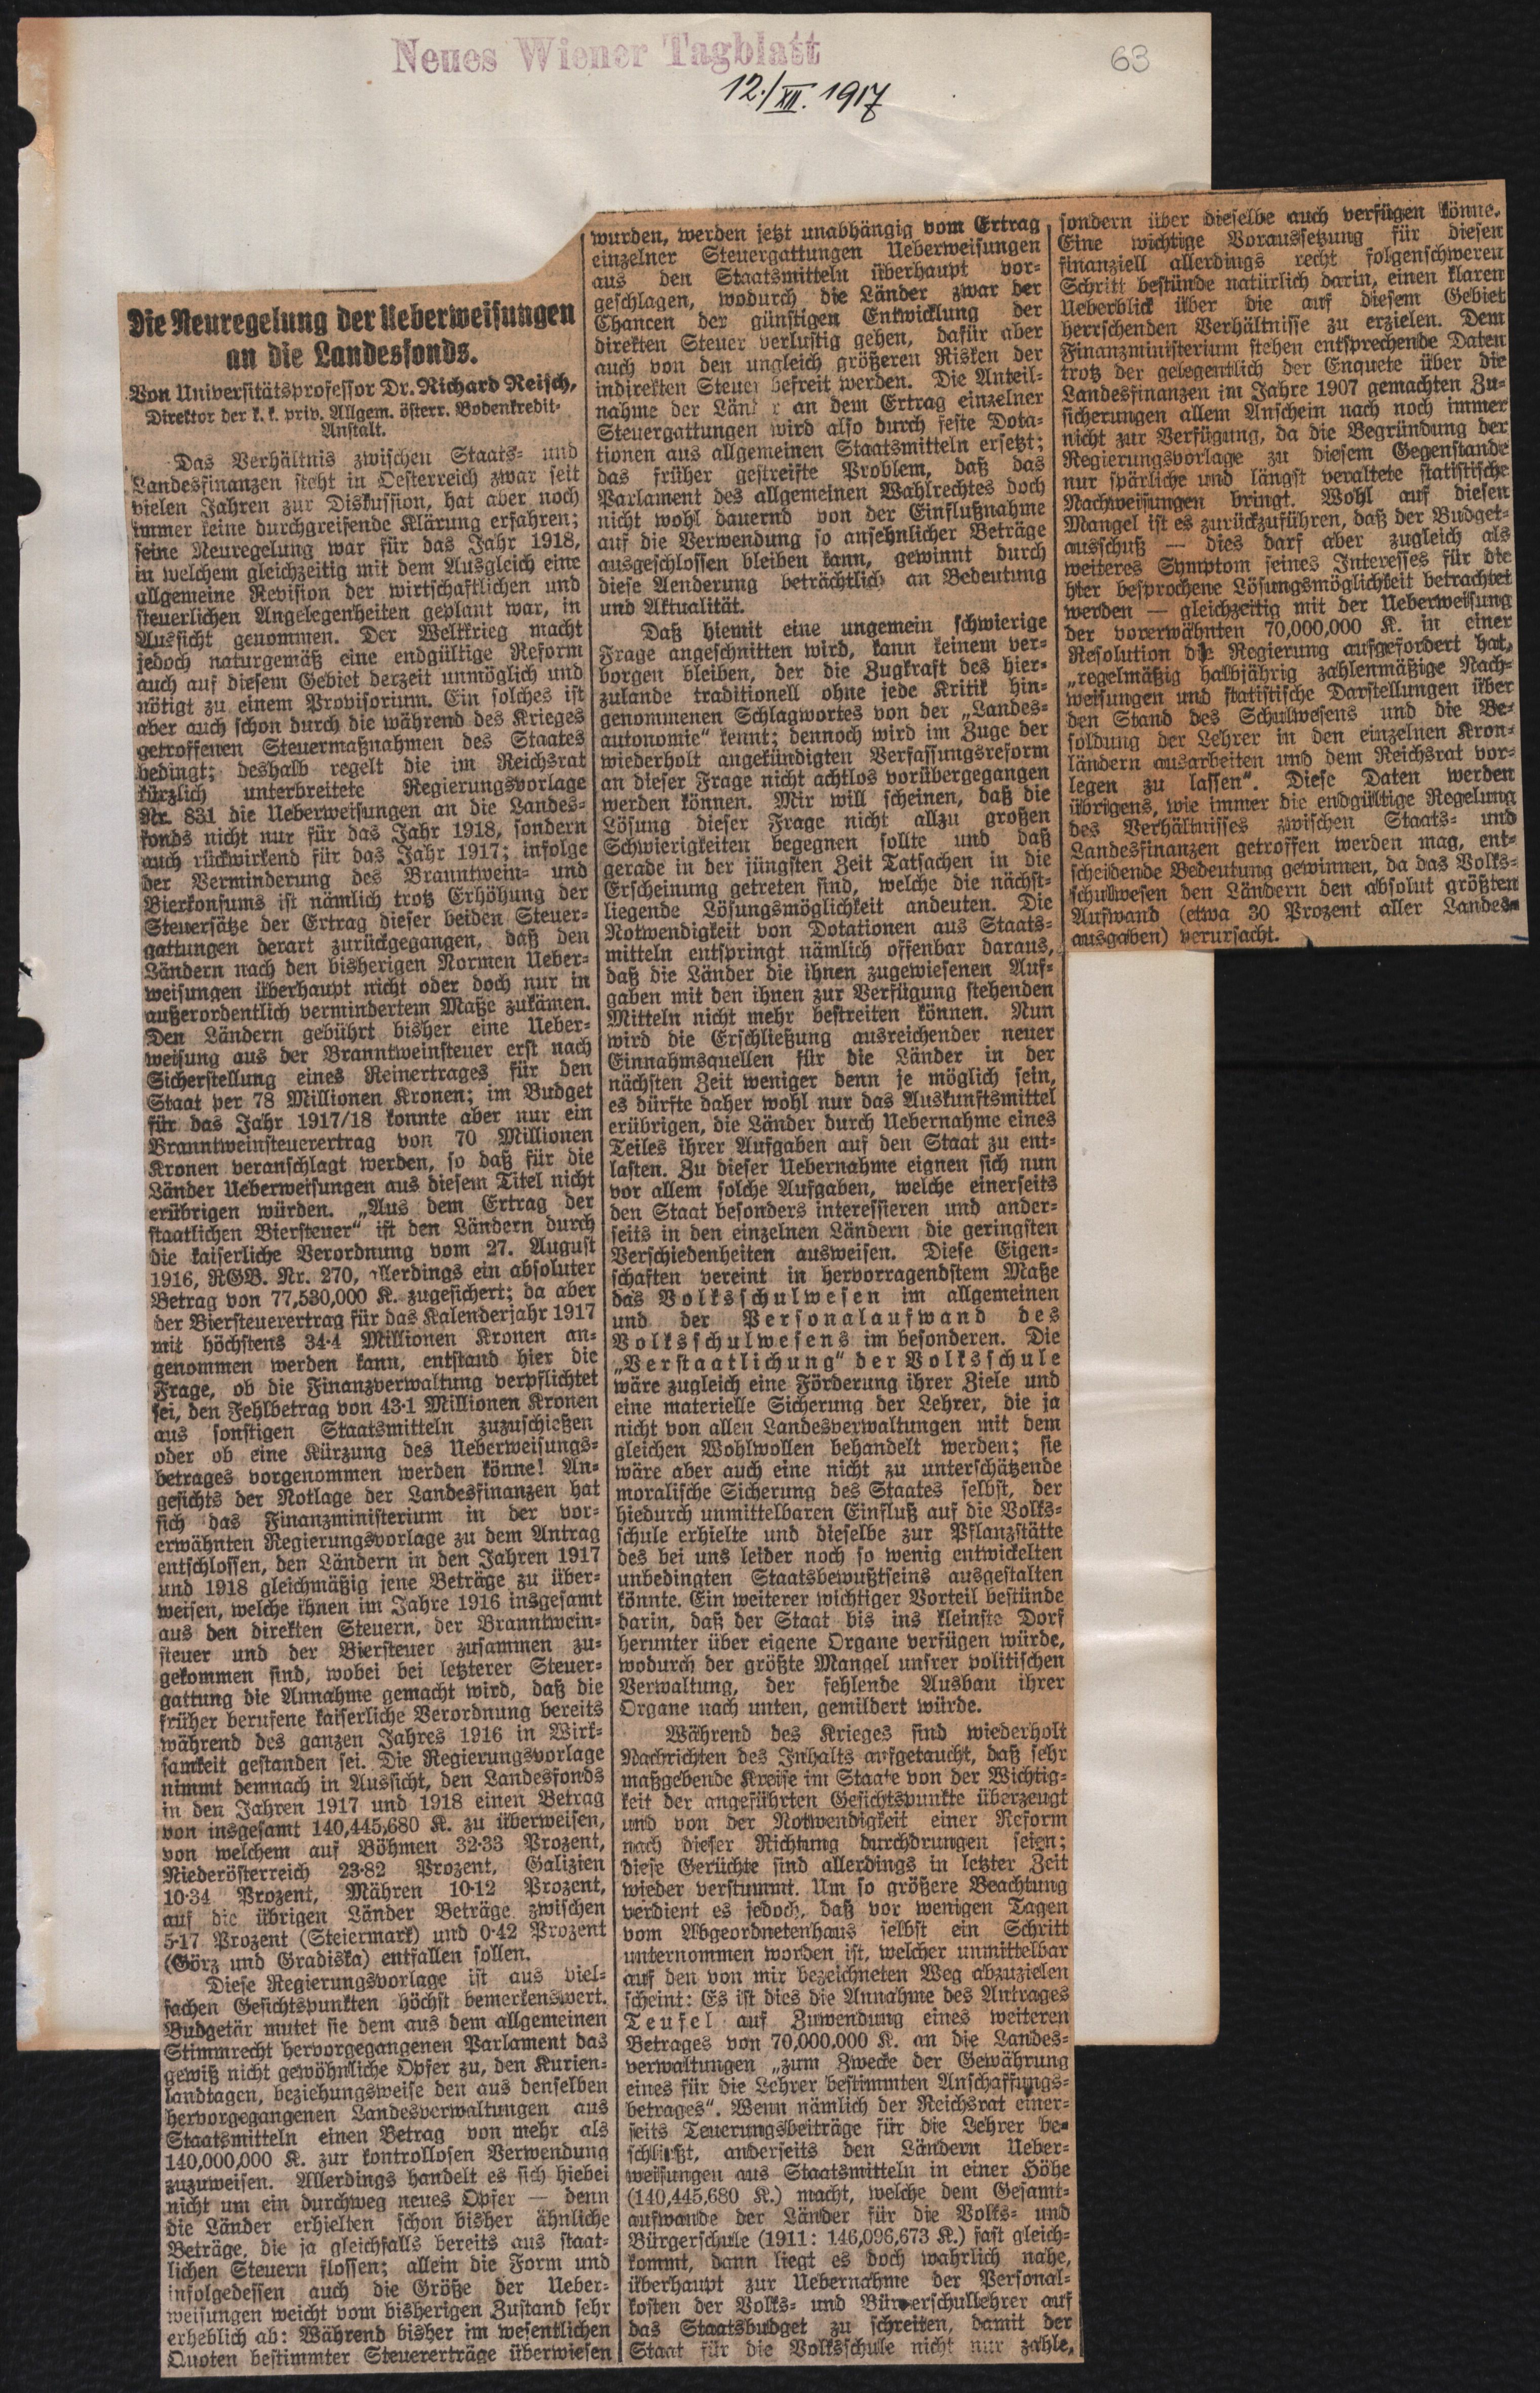 Neues Wiener Tagblatt
63
12./XII. 1917
Die Neuregelung der Ueberweisungen
an die Landesfonds.
Von Universitätsprofessor Dr. Richard Reisch,
Direktor der k. k. priv. Allgem. österr. Bodenkredit-
Anstalt.
Das Verhältnis zwischen Staats- und
Landesfinanzen steht in Oesterreich zwar seit
vielen Jahren zur Diskussion, hat aber noch
immer keine durchgreifende Klärung erfahren;
seine Neuregelung war für das Jahr 1918,
in welchem gleichzeitig mit dem Ausgleich eine
allgemeine Revision der wirtschaftlichen und
steuerlichen Angelegenheiten geplant war, in
Aussicht genommen. Der Weltkrieg macht
jedoch naturgemäß eine endgültige Reform
auch auf diesem Gebiet derzeit unmöglich und
nötigt zu einem Provisorium. Ein solches ist
aber auch schon durch die während des Krieges
getroffenen Steuermaßnahmen des Staates
bedingt; deshalb regelt die im Reichsrat
kürzlich unterbreitete Regierungsvorlage
Nr. 831 die Ueberweisungen an die Landes-
fonds nicht nur für das Jahr 1918, sondern
auch rückwirkend für das Jahr 1917; infolge
der Verminderung des Branntwein- und
Bierkonsums ist nämlich trotz Erhöhung der
Steuersätze der Ertrag dieser beiden Steuer-
gattungen derart zurückgegangen, daß den
Ländern nach den bisherigen Normen Ueber-
weisungen überhaupt nicht oder doch nur in
außerordentlich vermindertem Maße zukämen.
Den Ländern gebührt bisher eine Ueber-
weisung aus der Branntweinsteuer erst nach
Sicherstellung eines Reinertrages für den
Staat per 78 Millionen Kronen; im Budget
für das Jahr 1917/18 konnte aber nur ein
Branntweinsteuerertrag von 70 Millionen
Kronen veranschlagt werden, so daß für die
Länder Ueberweisungen aus diesem Titel nicht
erübrigen würden. „Aus dem Ertrag der
staatlichen Biersteuer“ ist den Ländern durch
die kaiserliche Verordnung vom 27. August
1916, RGB. Nr. 270, allerdings ein absoluter
Betrag von 77,530,000 K. zugesichert; da aber
der Biersteuerertrag für das Kalenderjahr 1917
mit höchstens 34·4 Millionen Kronen an-
genommen werden kann, entstand hier die
Frage, ob die Finanzverwaltung verpflichtet
sei, den Fehlbetrag von 43·1 Millionen Kronen
aus sonstigen Staatsmitteln zuzuschießen
oder ob eine Kürzung des Ueberweisungs-
betrages vorgenommen werden könne! An-
gesichts der Notlage der Landesfinanzen hat
sich das Finanzministerium in der vor-
erwähnten Regierungsvorlage zu dem Antrag
entschlossen, den Ländern in den Jahren 1917
und 1918 gleichmäßig jene Beträge zu über-
weisen, welche ihnen im Jahre 1916 insgesamt
aus den direkten Steuern, der Branntwein-
steuer und der Biersteuer zusammen zu-
gekommen sind, wobei bei letzterer Steuer-
gattung die Annahme gemacht wird, daß die
früher berufene kaiserliche Verordnung bereits
während des ganzen Jahres 1916 in Wirk-
samkeit gestanden sei. Die Regierungsvorlage
nimmt demnach in Aussicht, den Landesfonds
in den Jahren 1917 und 1918 einen Betrag
von insgesamt 140,445,680 K. zu überweisen,
von welchem auf Böhmen 32·33 Prozent,
Niederösterreich 23·82 Prozent, Galizien
10·34 Prozent, Mähren 10·12 Prozent,
auf die übrigen Länder Beträge zwischen
5·17 Prozent (Steiermark) und 0·42 Prozent
(Görz und Gradiska) entfallen sollen.
Diese Regierungsvorlage ist aus viel-
fachen Gesichtspunkten höchst bemerkenswert.
Budgetär mutet sie dem aus dem allgemeinen
Stimmrecht hervorgegangenen Parlament das
gewiß nicht gewöhnliche Opfer zu, den Kurien-
landtagen, beziehungsweise den aus denselben
hervorgegangenen Landesverwaltungen aus
Staatsmitteln einen Betrag von mehr als
140,000,000 K. zur kontrollosen Verwendung
zuzuweisen. Allerdings handelt es sich hiebei
nicht um ein durchweg neues Opfer — denn
die Länder erhielten schon bisher ähnliche
Beträge, die ja gleichfalls bereits aus staat-
lichen Steuern flossen; allein die Form und
infolgedessen auch die Größe der Ueber-
weisungen weicht vom bisherigen Zustand sehr
erheblich ab: Während bisher im wesentlichen
Quoten bestimmter Steuererträge überwiesen
wurden, werden jetzt unabhängig vom Ertrag
einzelner Steuergattungen Ueberweisungen
aus den Staatsmitteln überhaupt vor-
geschlagen, wodurch die Länder zwar der
Chancen der günstigen Entwicklung der
direkten Steuer verlustig gehen, dafür aber
auch von den ungleich größeren Risken der
indirekten Steuer befreit werden. Die Anteil-
nahme der Länder an dem Ertrag einzelner
Steuergattungen wird also durch feste Dota-
tionen aus allgemeinen Staatsmitteln ersetzt;
das früher gestreifte Problem, daß das
Parlament des allgemeinen Wahlrechtes doch
nicht wohl dauernd von der Einflußnahme
auf die Verwendung so ansehnlicher Beträge
ausgeschlossen bleiben kann, gewinnt durch
diese Aenderung beträchtlich an Bedeutung
und Aktualität.
Daß hiemit eine ungemein schwierige
Frage angeschnitten wird, kann keinem ver-
borgen bleiben, der die Zugkraft des hier-
zulande traditionell ohne jede Kritik hin-
genommenen Schlagwortes von der „Landes-
autonomie“ kennt; dennoch wird im Zuge der
wiederholt angekündigten Verfassungsreform
an dieser Frage nicht achtlos vorübergegangen
werden können. Mir will scheinen, daß die
Lösung dieser Frage nicht allzu großen
Schwierigkeiten begegnen sollte und daß
gerade in der jüngsten Zeit Tatsachen in die
Erscheinung getreten sind, welche die nächst-
liegende Lösungsmöglichkeit andeuten. Die
Notwendigkeit von Dotationen aus Staats-
mitteln entspringt nämlich offenbar daraus,
daß die Länder die ihnen zugewiesenen Auf-
gaben mit den ihnen zur Verfügung stehenden
Mitteln nicht mehr bestreiten können. Nun
wird die Erschließung ausreichender neuer
Einnahmsquellen für die Länder in der
nächsten Zeit weniger denn je möglich sein,
es dürfte daher wohl nur das Auskunftsmittel
erübrigen, die Länder durch Uebernahme eines
Teiles ihrer Aufgaben auf den Staat zu ent-
lasten. Zu dieser Uebernahme eignen sich nun
vor allem solche Aufgaben, welche einerseits
den Staat besonders interessieren und ander-
seits in den einzelnen Ländern die geringsten
Verschiedenheiten ausweisen. Diese Eigen-
schaften vereint in hervorragendstem Maße
das Volksschulwesen im allgemeinen
und der Personalaufwand des
Volksschulwesens im besonderen. Die
„Verstaatlichung“ der Volksschule
wäre zugleich eine Förderung ihrer Ziele und
eine materielle Sicherung der Lehrer, die ja
nicht von allen Landesverwaltungen mit dem
gleichen Wohlwollen behandelt werden; sie
wäre aber auch eine nicht zu unterschätzende
moralische Sicherung des Staates selbst, der
hiedurch unmittelbaren Einfluß auf die Volks-
schule erhielte und dieselbe zur Pflanzstätte
des bei uns leider noch so wenig entwickelten
unbedingten Staatsbewußtseins ausgestalten
könnte. Ein weiterer wichtiger Vorteil bestünde
darin, daß der Staat bis ins kleinste Dorf
herunter über eigene Organe verfügen würde,
wodurch der größte Mangel unsrer politischen
Verwaltung, der fehlende Ausbau ihrer
Organe nach unten, gemildert würde.
Während des Krieges sind wiederholt
Nachrichten des Inhalts aufgetaucht, daß sehr
maßgebende Kreise im Staate von der Wichtig-
keit der angeführten Gesichtspunkte überzeugt
und von der Notwendigkeit einer Reform
nach dieser Richtung durchdrungen seien;
diese Gerüchte sind allerdings in letzter Zeit
wieder verstummt. Um so größere Beachtung
verdient es jedoch, daß vor wenigen Tagen
vom Abgeordnetenhaus selbst ein Schritt
unternommen worden ist, welcher unmittelbar
auf den von mir bezeichneten Weg abzuzielen
scheint: Es ist dies die Annahme des Antrages
Teufel auf Zuwendung eines weiteren
Betrages von 70,000.000 K. an die Landes-
verwaltungen „zum Zwecke der Gewährung
eines für die Lehrer bestimmten Anschaffungs-
betrages“. Wenn nämlich der Reichsrat einer-
seits Teuerungsbeiträge für die Lehrer be-
schließt, anderseits den Ländern Ueber-
weisungen aus Staatsmitteln in einer Höhe
(140,445,680 K.) macht, welche dem Gesamt-
aufwande der Länder für die Volks- und
Bürgerschule (1911: 146,096,673 K.) fast gleich-
kommt, dann liegt es doch wahrlich nahe,
überhaupt zur Uebernahme der Personal-
kosten der Volks- und Bürgerschullehrer auf
das Staatsbudget zu schreiten, damit der
Staat für die Volksschule nicht nur zahle,
sondern über dieselbe auch verfügen könne.
Eine wichtige Voraussetzung für diesen
finanziell allerdings recht folgenschweren
Schritt bestünde natürlich darin, einen klaren
Ueberblick über die auf diesem Gebiet
herrschenden Verhältnisse zu erzielen. Dem
Finanzministerium stehen entsprechende Daten
trotz der gelegentlich der Enquete über die
Landesfinanzen im Jahre 1907 gemachten Zu-
sicherungen allem Anschein nach noch immer
nicht zur Verfügung, da die Begründung der
Regierungsvorlage zu diesem Gegenstande
nur spärliche und längst veraltete statistische
Nachweisungen bringt. Wohl auf diesen
Mangel ist es zurückzuführen, daß der Budget-
ausschuß — dies darf aber zugleich als
weiteres Symptom seines Interesses für die
hier besprochene Lösungsmöglichkeit betrachtet
werden — gleichzeitig mit der Ueberweisung
der vorerwähnten 70,000,000 K. in einer
Resolution die Regierung aufgefordert hat,
„regelmäßig halbjährig zahlenmäßige Nach-
weisungen und statistische Darstellungen über
den Stand des Schulwesens und die Be-
soldung der Lehrer in den einzelnen Kron-
ländern ausarbeiten und dem Reichsrat vor-
legen zu lassen“. Diese Daten werden
übrigens, wie immer die endgültige Regelung
des Verhältnisses zwischen Staats- und
Landesfinanzen getroffen werden mag, ent-
scheidende Bedeutung gewinnen, da das Volks-
schulwesen den Ländern den absolut größten
Aufwand (etwa 30 Prozent aller Landes-
ausgaben) verursacht.